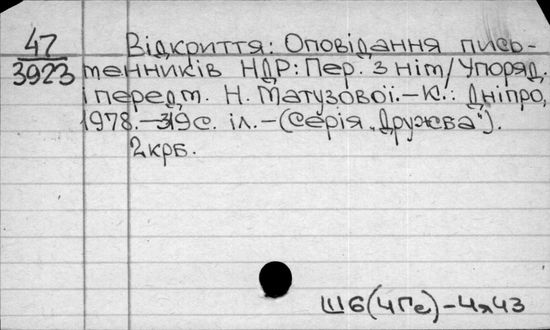 47 Відкриття: Оповідання пись-
3923 менників НДР: Пер. з нім/Упоряд.
і передм. Н. Матузової.–К.: Дніпро,
1978.–319с. іл.–(Серія „Дружба").
2крб.
Ш6(4Ге)–4я43